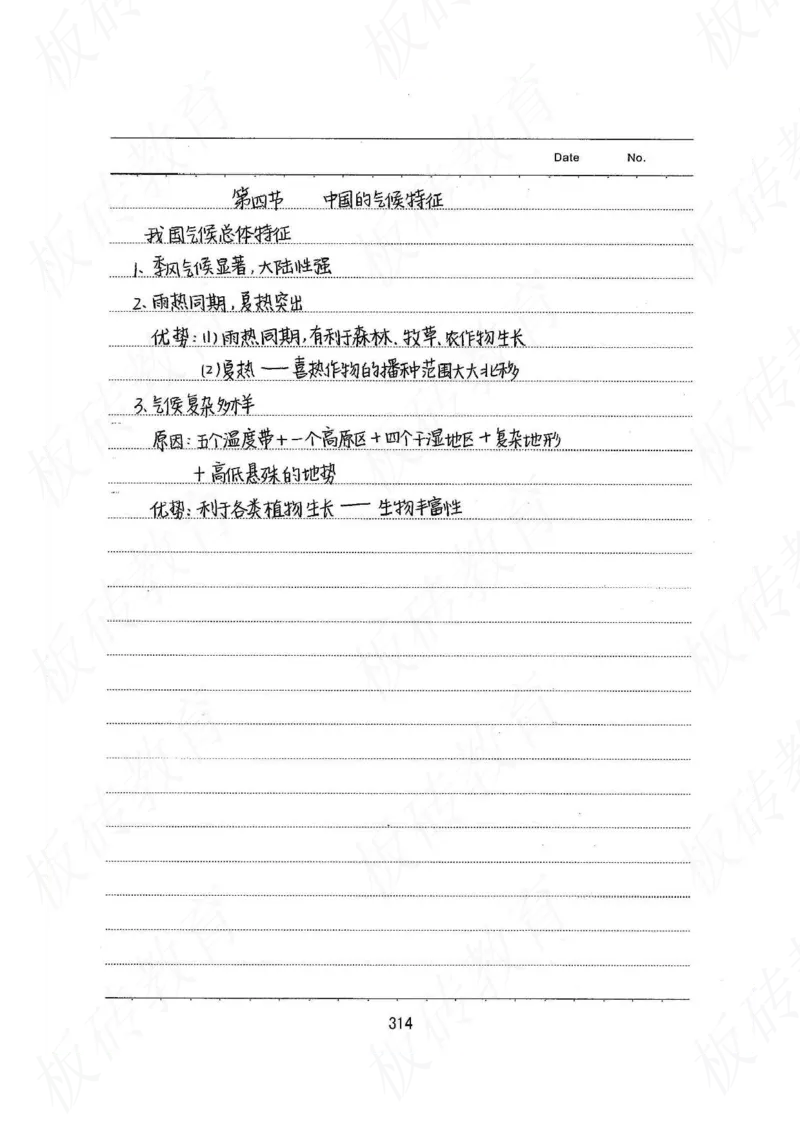 Date No.
第四节 中国的气候特征
我国气候总体特征
1、季风气候显著,大陆性强
2、雨热同期,夏热突出
优势:(1)雨热同期,有利于森林、牧草、农作物生长
(2)夏热——喜热作物的播种范围大大北移
3、气候复杂多样
原因:五个温度带+一个高原区+四个干湿地区+复杂地形
+高低悬殊的地势
优势:利于各类植物生长——生物丰富性
314
板砖教育